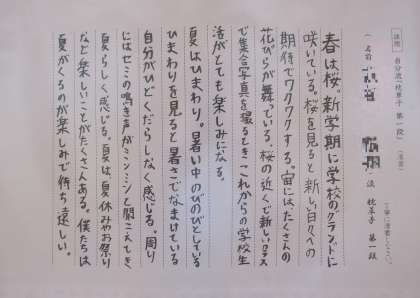 課題 自分流「枕草子 第一段」（清書）
丁寧に清書しなさい。
（名前 流 枕草子 第一段
春は桜。新学期に学校のグランドに
咲いている。桜を見ると新しい日々への
期待でワクワクする。宙にはたくさんの
花びらが舞っている。桜の近くで新しいクラス
で集合写真を撮るときこれからの学校生
活がとても楽しみになる。
夏はひまわり。暑い中のびのびとしている
ひまわりを見ると暑さでなまけている
自分がひどくだらしなく感じる。周り
にはセミの鳴き声がミンミンと聞こえてき
夏らしく感じる。夏は、夏休みやお祭り
など楽しいことがたくさんある。僕たちは
夏がくるのが楽しみで待ち遠しい。